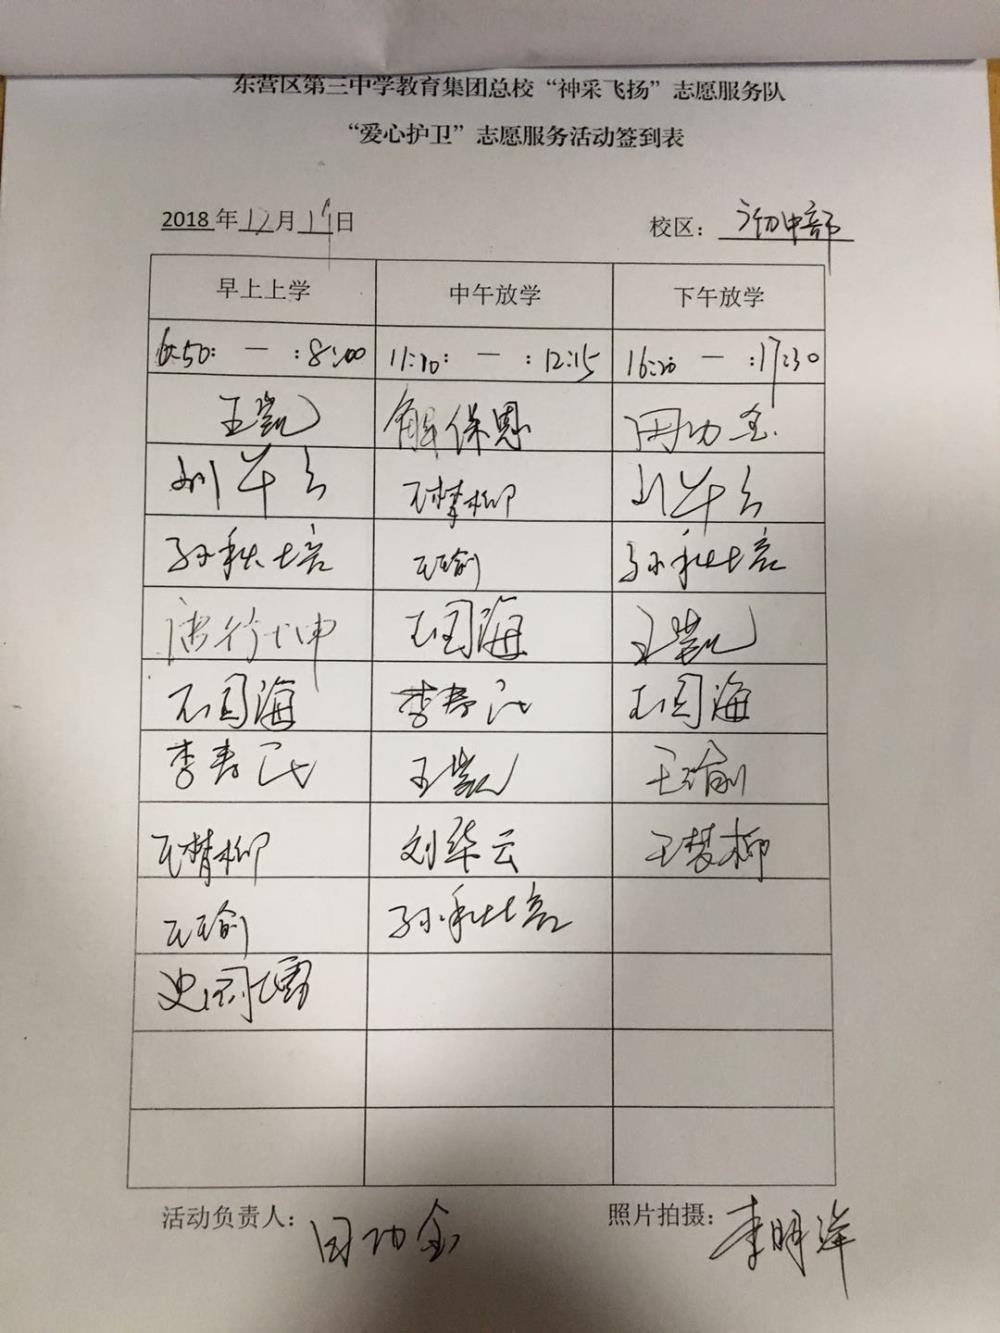 东营区第三中学教育集团总校“神采飞扬”志愿服务队
“爱心护卫”志愿服务活动签到表
2018年12月19日 校区：初中部
早上上学 中午放学 下午放学
6:50: — :8:00 11:20: — :12:15 16:20 — :17:30
王凯 解保恩 田功金
刘华云 王梦柳 刘华云
孙秋培 王瑜 孙秋培
王国海 王凯
王国海 李寿民 王国海
李寿民 王凯 王瑜
王梦柳 刘华云 王梦柳
王瑜 孙秋培
史国
活动负责人：田功金 照片拍摄：李明洋